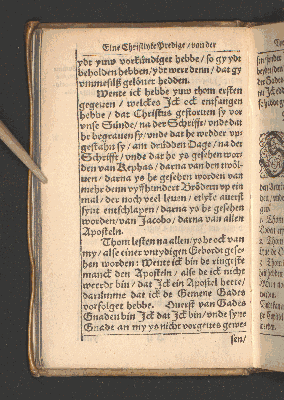 Eine Christlike Predige / van der
ydt yuw vorkündiget hebbe / so gy ydt
beholden hebben / ydt were denn / dat gy
ummesüß gelövet hedden.
Wente ick hebbe yuw thom ersten
gegeven / welckes Ick ock entfangen
hebbe / dat Christus gestorven sy vor
unse Sünde / na der Schrifft / unde dat
he begraven sy / unde dat he wedder up-
gestahn sy / am drüdden Dage / na der
Schrifft / unde dat he ys gesehen wor-
den van Kephas / darna van den twöl-
ven / darna ys he gesehen worden van
mehr denn vyffhundert Brödern up ein
mal / der noch veel leven / etlyke averst
synt entschlapen / darna ys he gesehen
worden / van Jacobo / darna van allen
Aposteln.
Thom lesten na allen / ys he ock van
my / alse einer untydigen Gebordt gese-
hen worden: Wente ick bin de ringeste
manck den Aposteln / alse de ick nicht
weerdt bin / dat Ick ein Apostel hete /
darümme dat ick de Gemene Gades
vorfolget hebbe. Överst van Gades
Gnaden bin Ick dat Ick bin / unde syne
Gnade an my ys nicht vorgeves gewe-
sen /